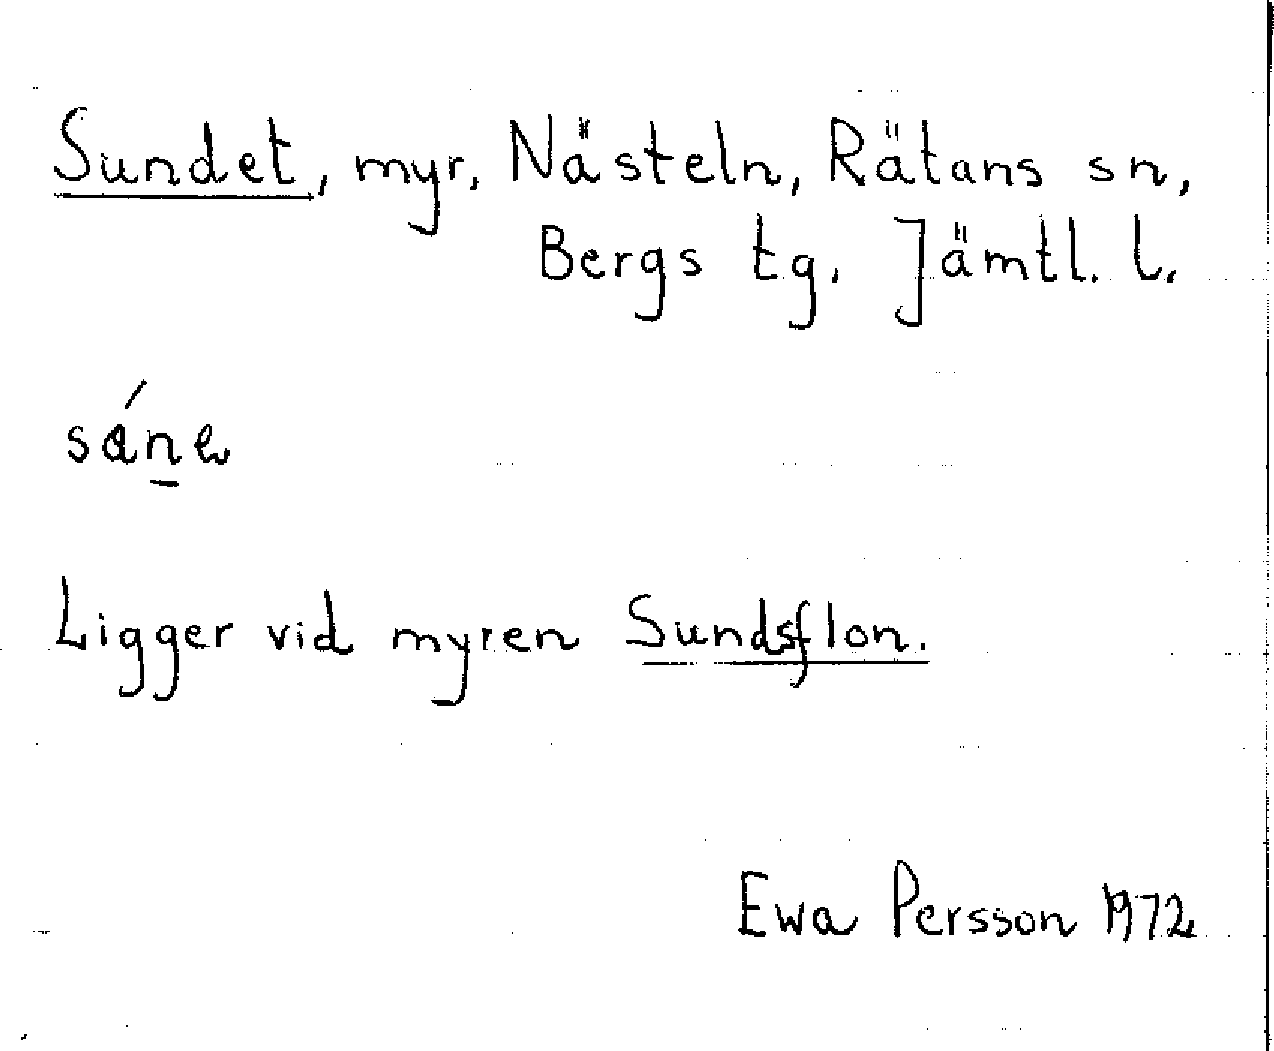 Sundet, myr, Nästeln, Rätans sn,
Bergs tg. Jämtl. l.
Ligger vid myren Sundsflon.
Ewa Persson 1972